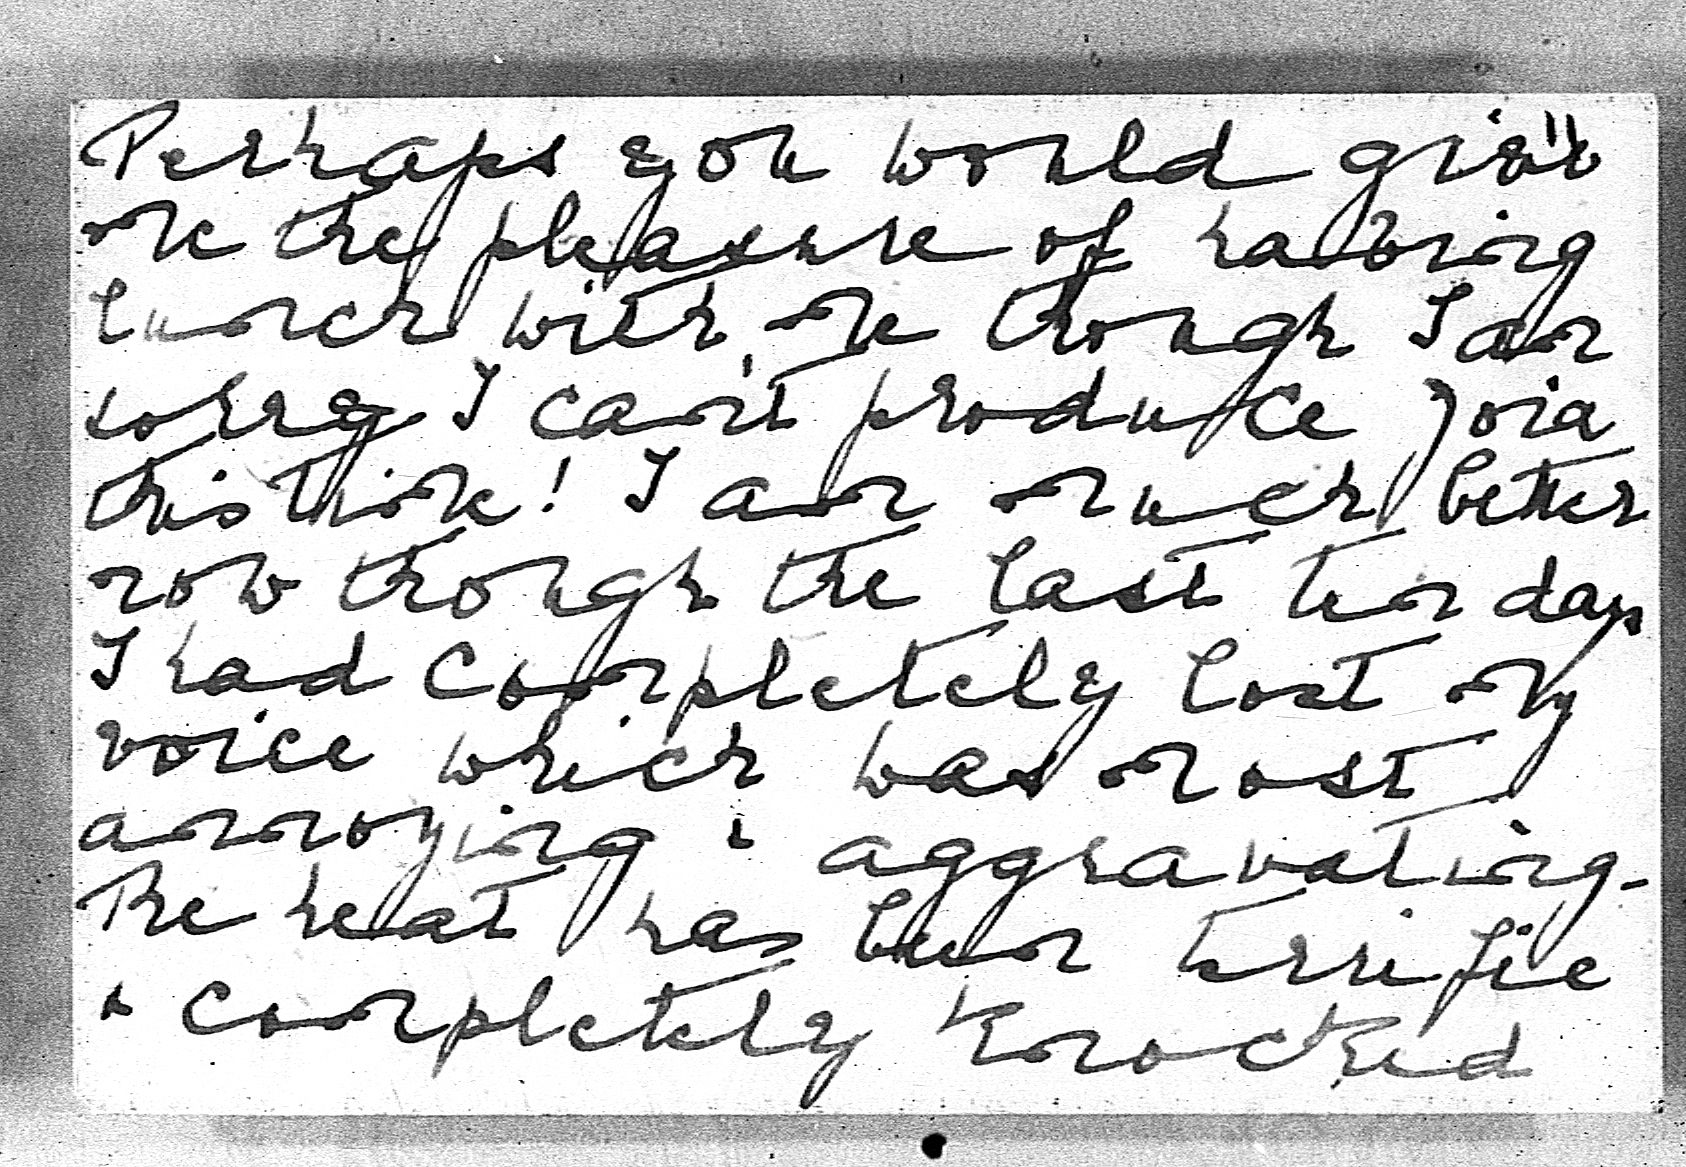 Perhaps you would give
me the pleasure of having
lunch with me though I am
sorry I can't produce Zoia
this time! I am much better
now though the last ten days
I had completely lost my
voice which was most
annoying & aggravating.
The heat has been terrific
& completely knocked